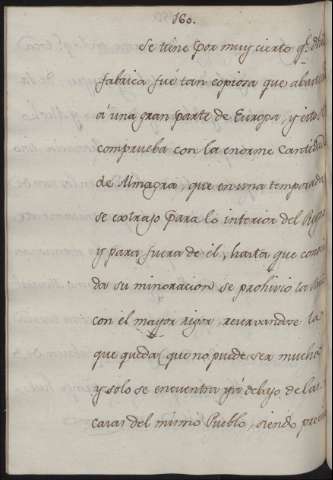 160.
Se tiene por muy cierto q.e
fabrica fué tan copiosa que
á una gran parte de Europa, y esto
comprueba con la enorme Cantidad
de Almagra, que en una temporada
se extrajo para lo interior del
y para fuera de él, hasta que
da su minoracion se prohivio la
con el mayor rigor, reservandose la
que queda, que no puede ser mucha
y solo se encuentra yá debajo de las
casas del mismo Pueblo, siendo